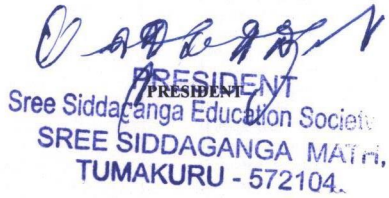 PRESIDENT
PRESIDENT
Sree Siddaganga Education Society
SREE SIDDAGANGA MATH,
TUMAKURU - 572104.